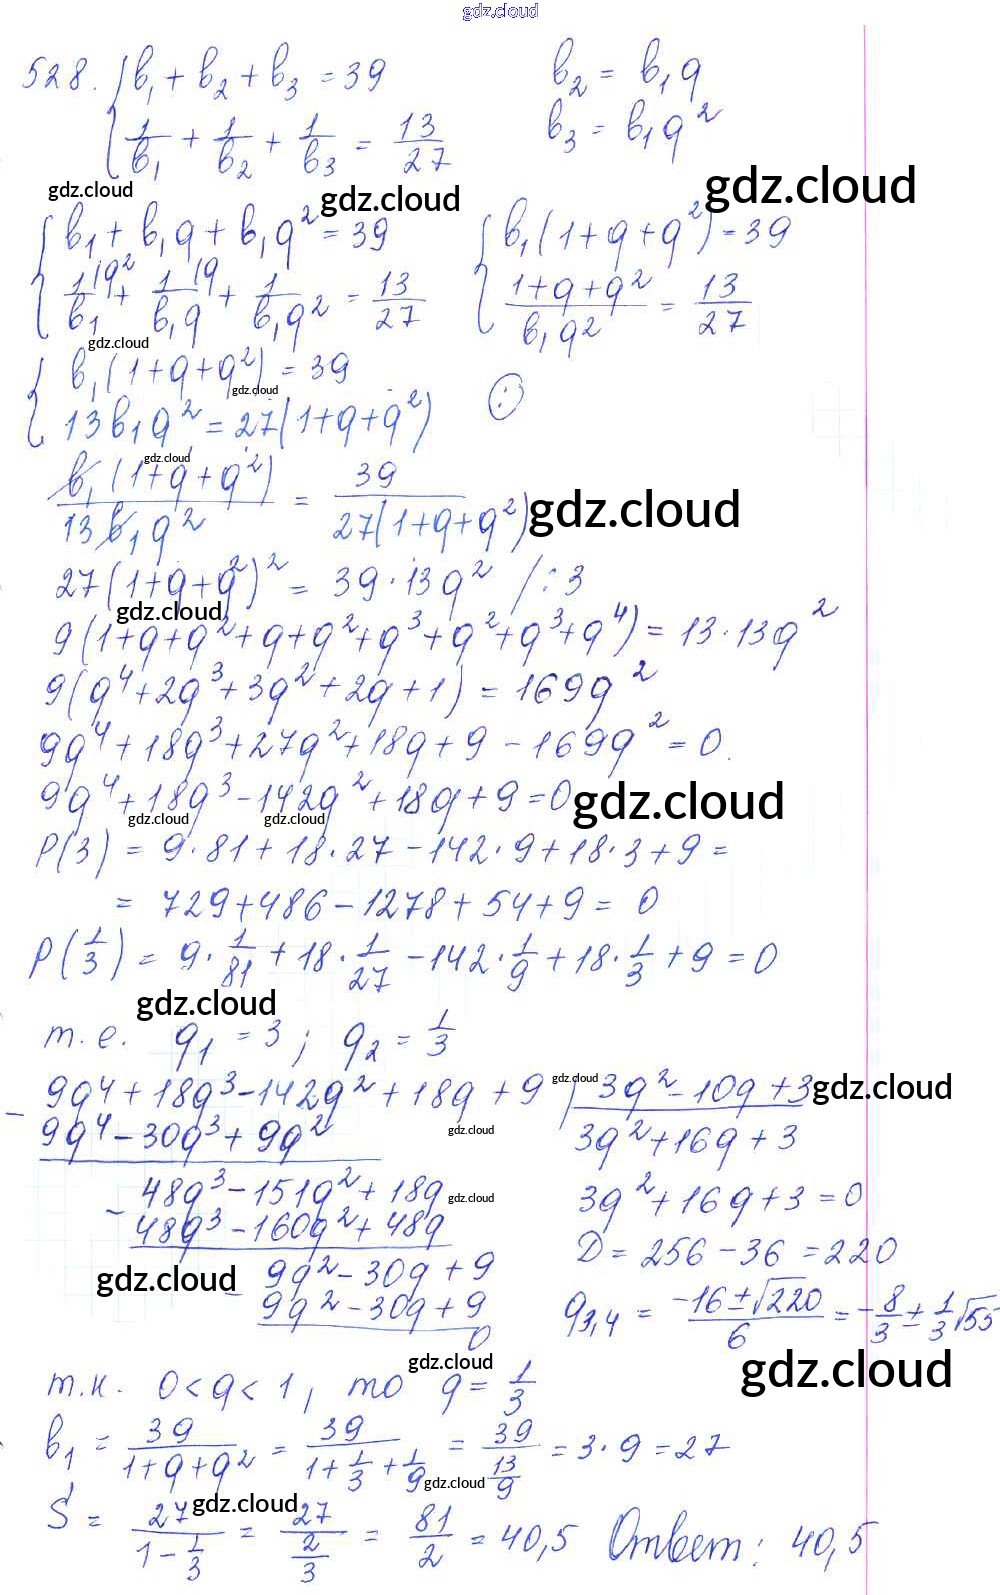 gdz.cloud
528. { b₁ + b₂ + b₃ = 39     b₂ = b₁q
{ 1/b₁ + 1/b₂ + 1/b₃ = 13/27     b₃ = b₁q²
gdz.cloud gdz.cloud gdz.cloud
{ b₁ + b₁q + b₁q² = 39     { b₁(1+q+q²) = 39
{ 1/b₁ \q² + 1/b₁q \q + 1/b₁q² = 13/27     { (1+q+q²)/(b₁q²) = 13/27
gdz.cloud
{ b₁(1+q+q²) = 39
gdz.cloud
{ 13b₁q² = 27(1+q+q²)     (:)
gdz.cloud
b₁(1+q+q²)/(13b₁q²) = 39/(27(1+q+q²))
gdz.cloud
27(1+q+q²)² = 39·13q² /:3
gdz.cloud
9(1+q+q²+q+q²+q³+q²+q³+q⁴) = 13·13q²
9(q⁴+2q³+3q²+2q+1) = 169q²
9q⁴+18q³+27q²+18q+9-169q² = 0.
9q⁴+18q³-142q²+18q+9=0
gdz.cloud
gdz.cloud gdz.cloud
P(3) = 9·81+18·27-142·9+18·3+9 =
= 729+486-1278+54+9 = 0
P(1/3) = 9·1/81+18·1/27-142·1/9+18·1/3+9 = 0
gdz.cloud
т.е. q₁ = 3; q₂ = 1/3
- 9q⁴+18q³-142q²+18q+9 | 3q²-10q+3
gdz.cloud gdz.cloud
9q⁴-30q³+9q²     3q²+16q+3
gdz.cloud
- 48q³-151q²+18q     3q²+16q+3=0
gdz.cloud
48q³-160q²+48q     D = 256-36 = 220
gdz.cloud
- 9q²-30q+9
9q²-30q+9     q₃,₄ = (-16±√220)/6 = -8/3 ± 1/3√55
0
gdz.cloud gdz.cloud
т.к. 0<q<1, то q = 1/3
b₁ = 39/(1+q+q²) = 39/(1+1/3+1/9) = 39/(13/9) = 3·9 = 27
gdz.cloud
gdz.cloud
S = 27/(1-1/3) = 27/(2/3) = 81/2 = 40,5     Ответ: 40,5